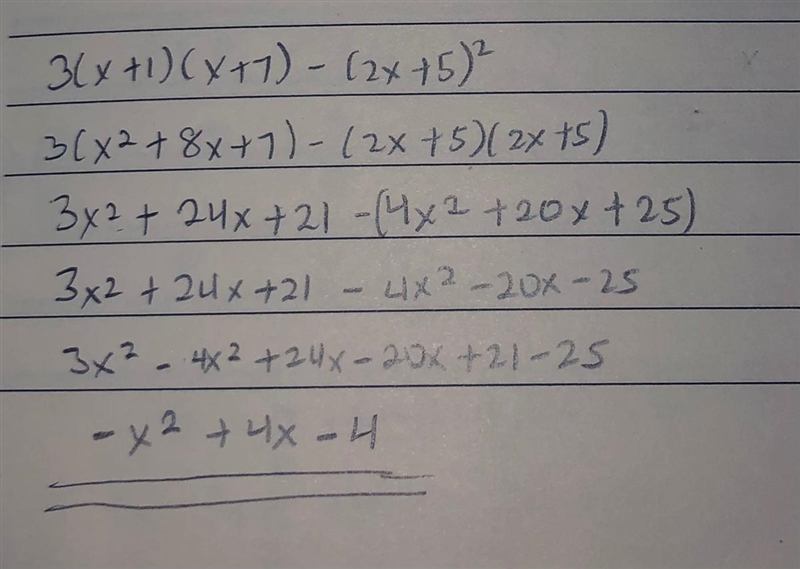 3(x+1)(x+7) - (2x+5)²
3(x²+8x+7) - (2x+5)(2x+5)
3x² + 24x+21 -(4x² +20x+25)
3x² + 24x+21 - 4x² -20x-25
3x² - 4x² +24x-20x+21-25
-x² +4x-4